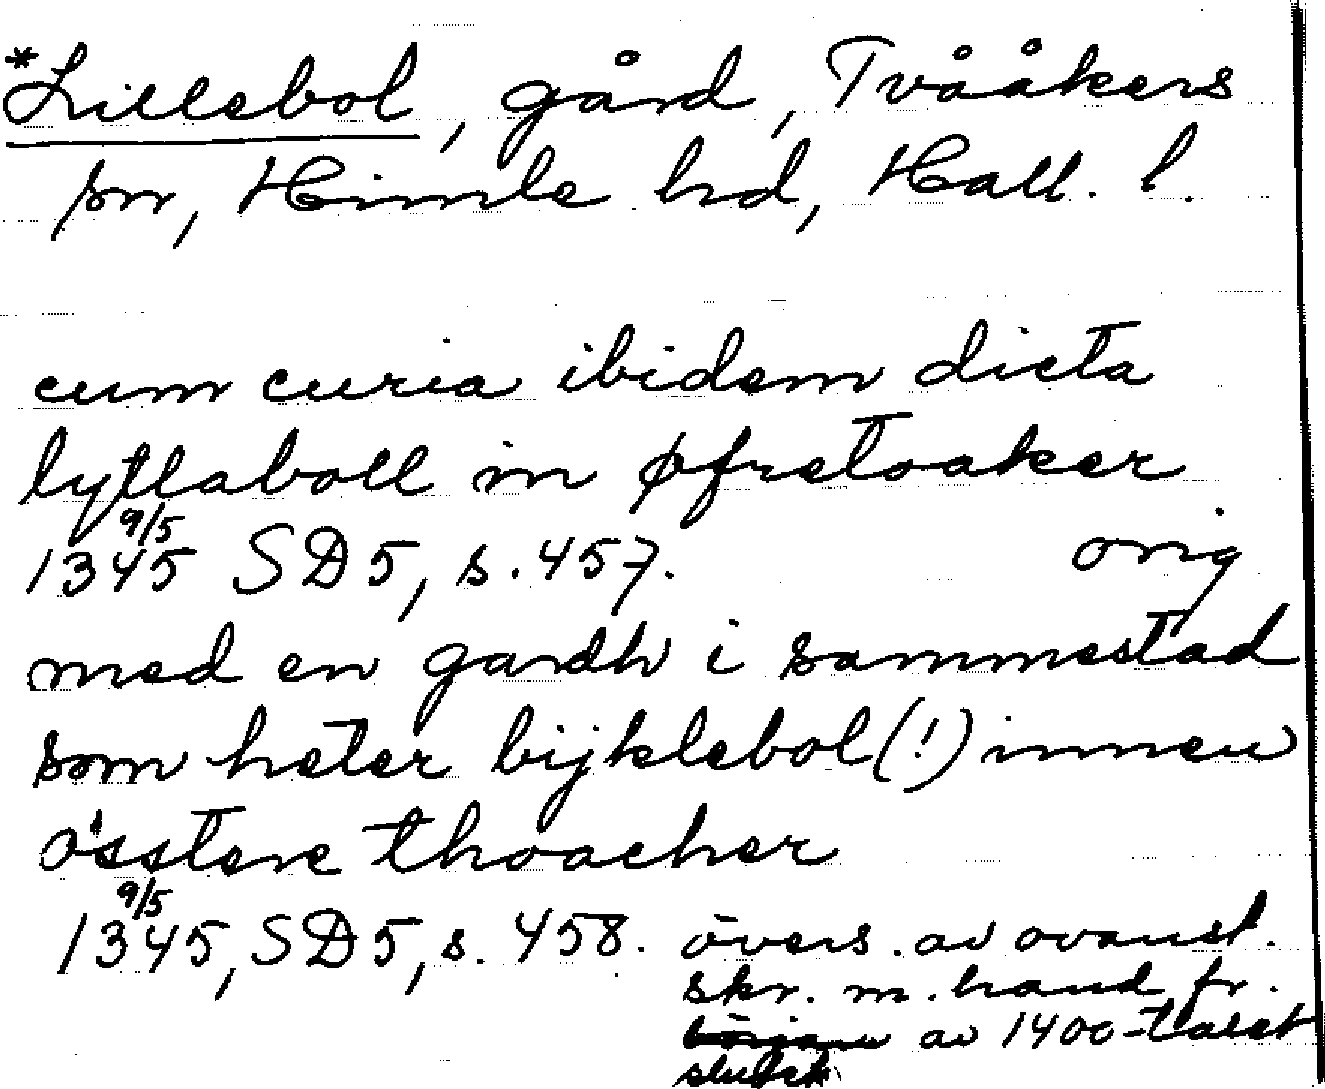 *Lillebol, gård, Tvååkers
sn, Himle hd, Hall. l.
cum curia ibidem dicta
lytlaboll in øfretoaker
1345 9/5 SD5, s. 457. orig
med en gardh i sammestad
som heter bijklebol(!) innen
össtere thoacher
1345 9/5, SD5, s. 458. övers. av ovanst.
skr. m. hand fr.
början av 1400-talet
slutet